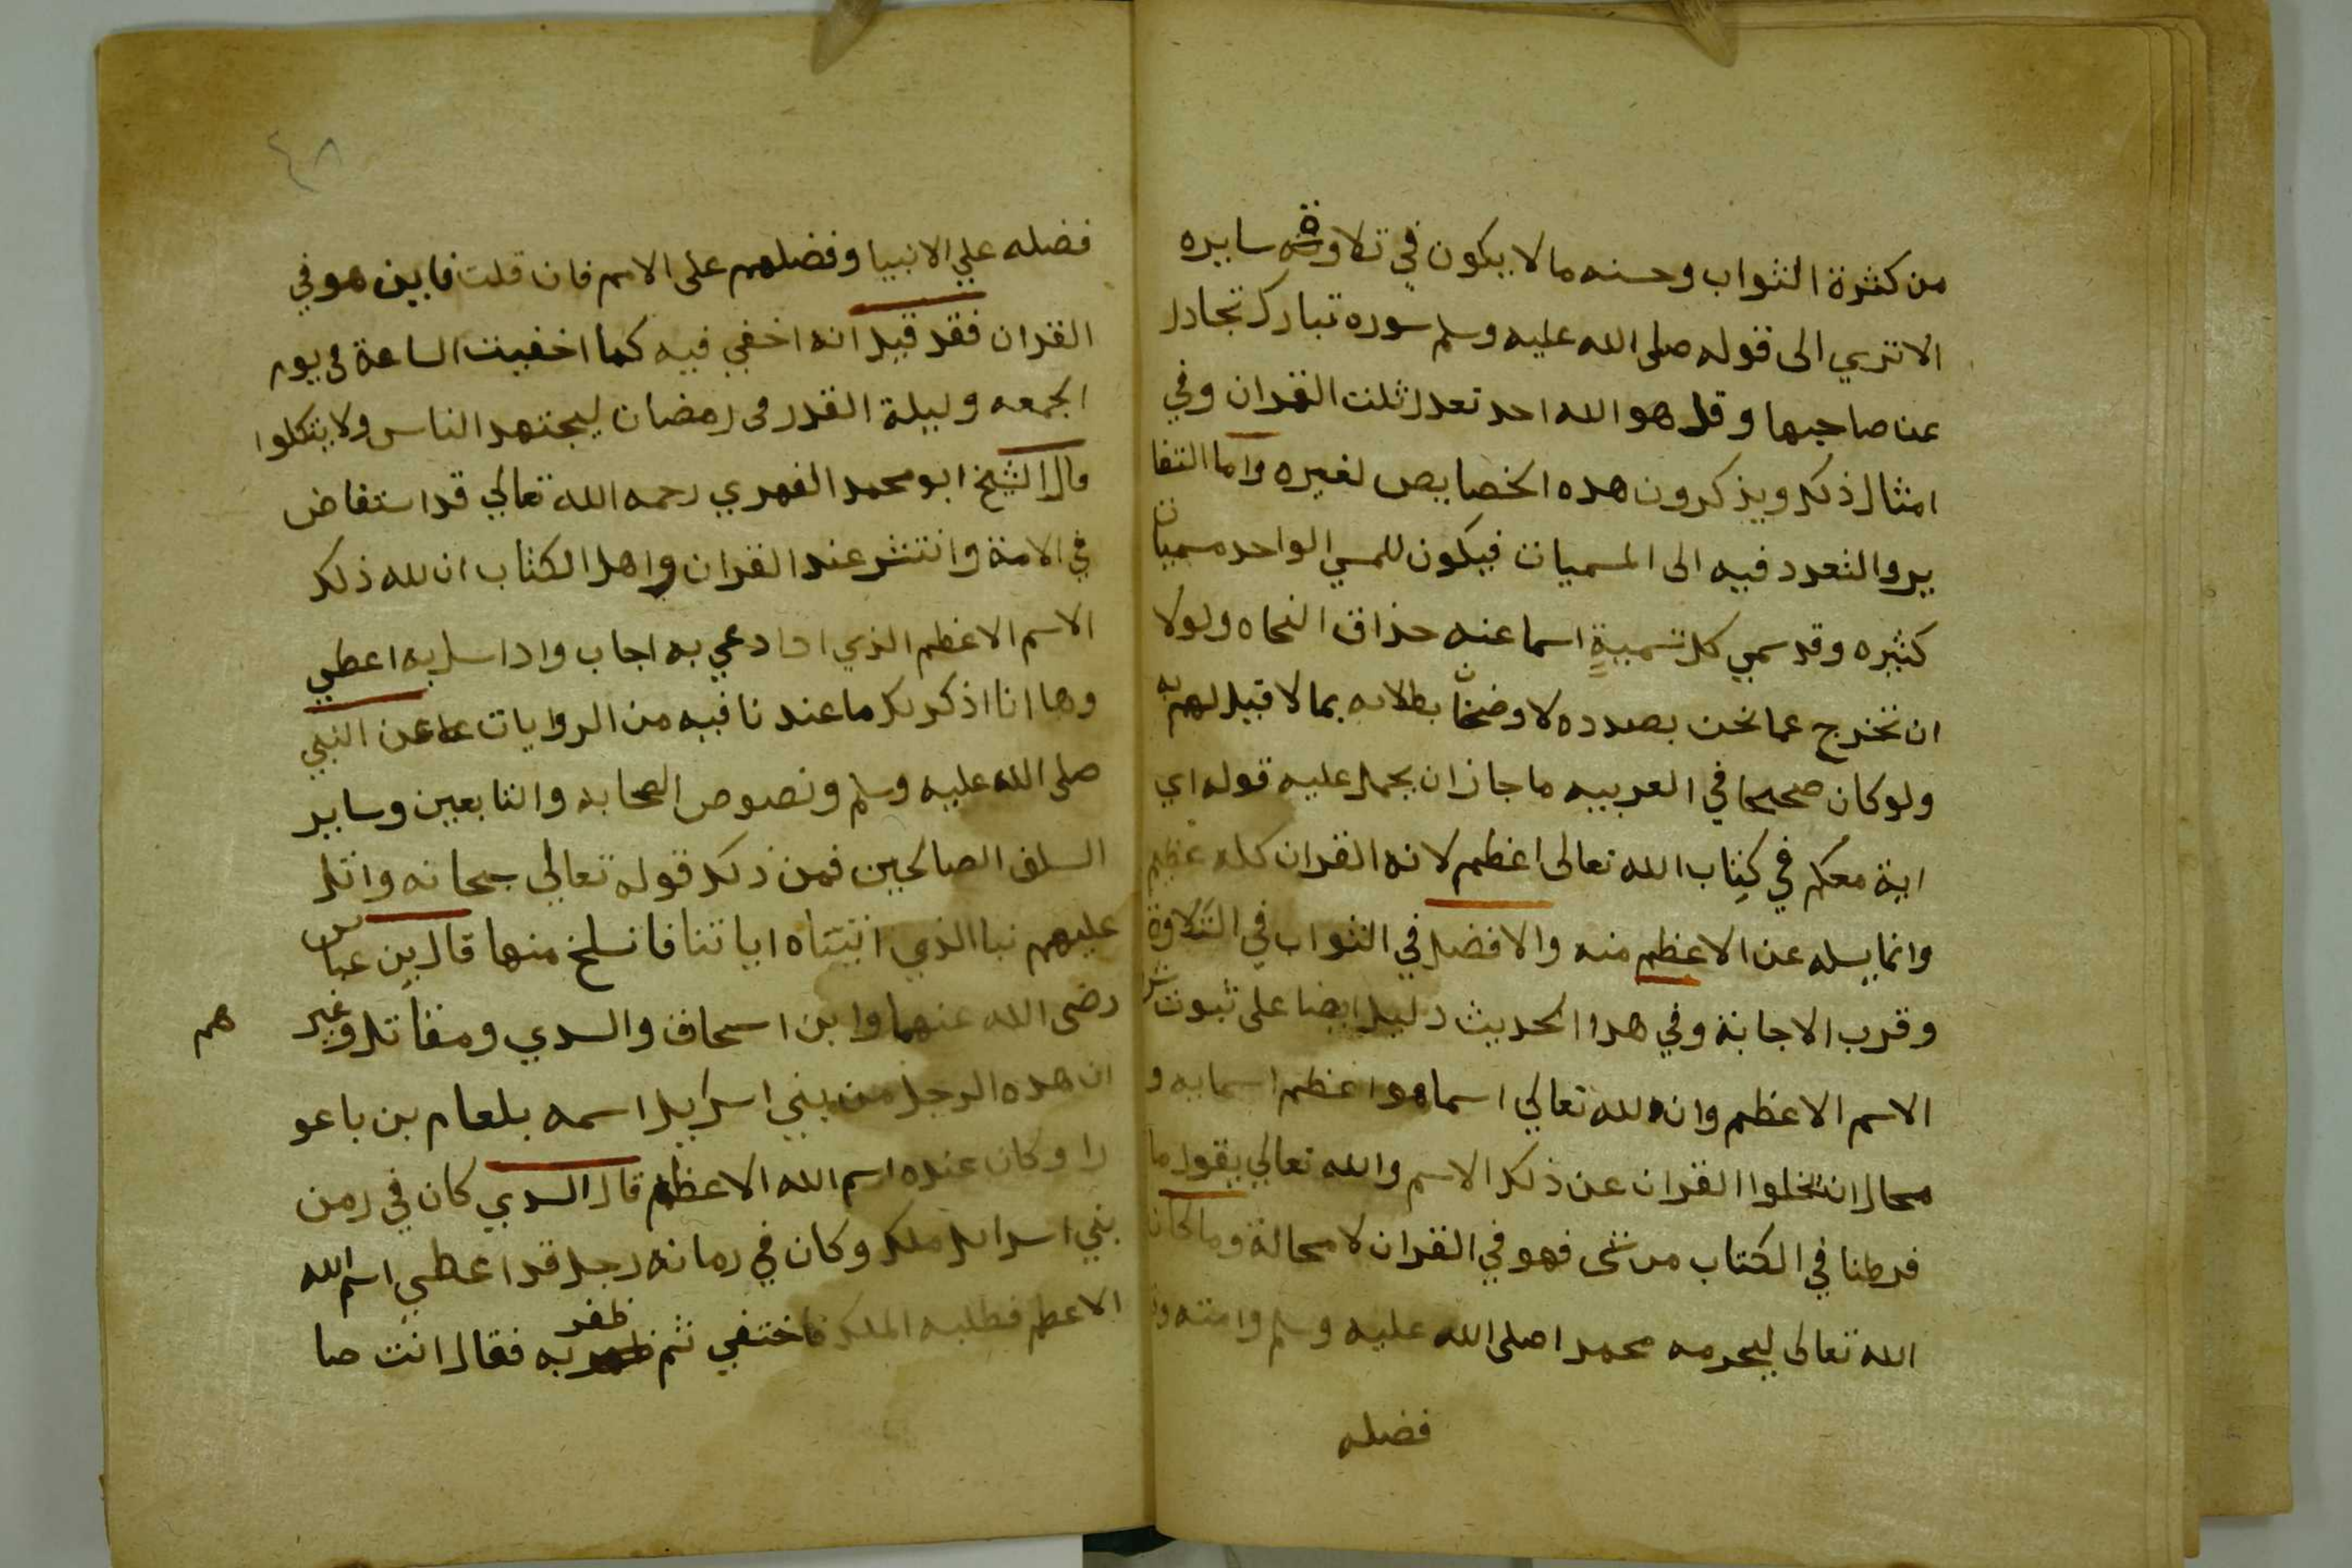 من كثرة الثواب وحسنه مالا يكون في تلاوة سايره
الاتري الى قوله صلى الله عليه وسلم سوره تبارك تجادل
عن صاحبها وقل هو الله احد تعدل ثلث القران وفي
امثال ذلك ويذكرون هده الخصايص لغيره واما التفا
يرو التعدد فيه الى المسميات فيكون للمسي الواحد مسميات
كثيره وقد سمي كل تسمية اسما عنه حذاق النحاه ولولا
ان نخرج عما نحن بصدده لاوضحنا بطلانه بما لا قبل لهم به
ولو كان صحيحا في العربيه ماجاز ان يحمل عليه قوله اي
اية معكم في كتاب الله تعالى اعظم لانه القران كله عظيم
وانما يسله عن الاعظم منه والافضل في الثواب في التلاوة
وقرب الاجابة وفي هدا الحديث دليل ايضا على ثبوت
الاسم الاعظم وان لله تعالي اسما هو اعظم اسمايه و
محال ان تخلوا القران عن ذلك الاسم والله تعالي يقول ما
فرطنا في الكتاب من شى فهو في القران لا محالة وما كان
الله تعالى ليحرمه محمدا صلى الله عليه وسلم وامته
فضله
٤٨
فضله علي الانبيا وفضلهم على الامم فان قلت فاين هو في
القران فقد قيل انه اخفي فيه كما اخفيت الساعة في يوم
الجمعه وليلة القدر في رمضان ليجتهد الناس ولا يتكلوا
قال الشيخ ابو محمد الفهري رحمه الله تعالي قد استفاض
في الامة وانتشر عند القران واهل الكتاب ان لله ذلك
الاسم الاعظم الذي ادا دعي به اجاب وادا سل به اعطي
وها انا اذكر لك ما عندنا فيه من الروايات عن النبي
صلى الله عليه وسلم ونصوص الصحابه والتابعين وساير
السلف الصالحين فمن ذلك قوله تعالي سبحانه واتل
عليهم نبا الذي اتيناه اياتنا فانسلخ منها قال بن عباس
رضى الله عنهما وابن اسحاق والسدي ومقاتل وغير
هم
ان هده الرجل من بني اسرايل اسمه بلعام بن باعو
را وكان عنده اسم الله الاعظم قال السدي كان في زمن
بني اسرايل ملك وكان في زمانه رجل قد اعطي اسم الله
الاعظم فطلبه الملك فاختفي ثم ظفر به فقال انت صا